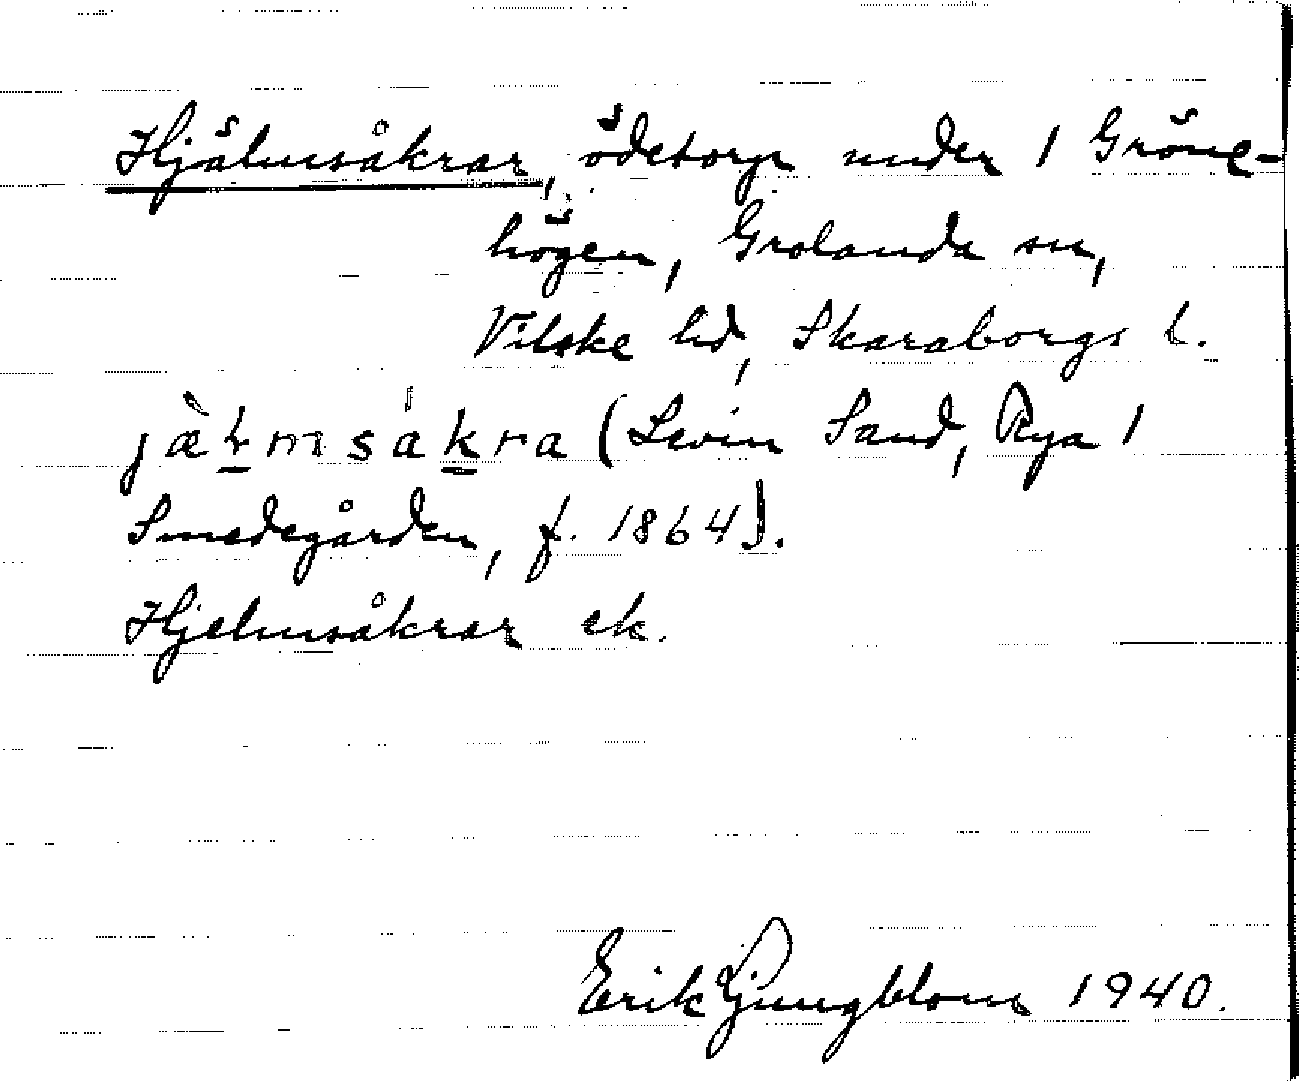 Hjälmsåkrar, ödetorp under 1 Gröne-
högen, Grolanda sn,
Vilske hd, Skaraborgs l.
(Levin Sand, Rya 1
Smedegården, f. 1864).
Hjelmsåkrar ek.
Erik Ljungblom 1940.